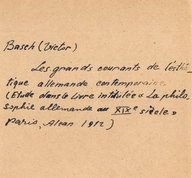 Basch (Victor)
Les grands courants de l'esthé-
tique allemande contemporaine
(Etude dans le livre intitulée « La philo-
sophie allemande au XIXe siècle »
Paris, Alcan 1912)